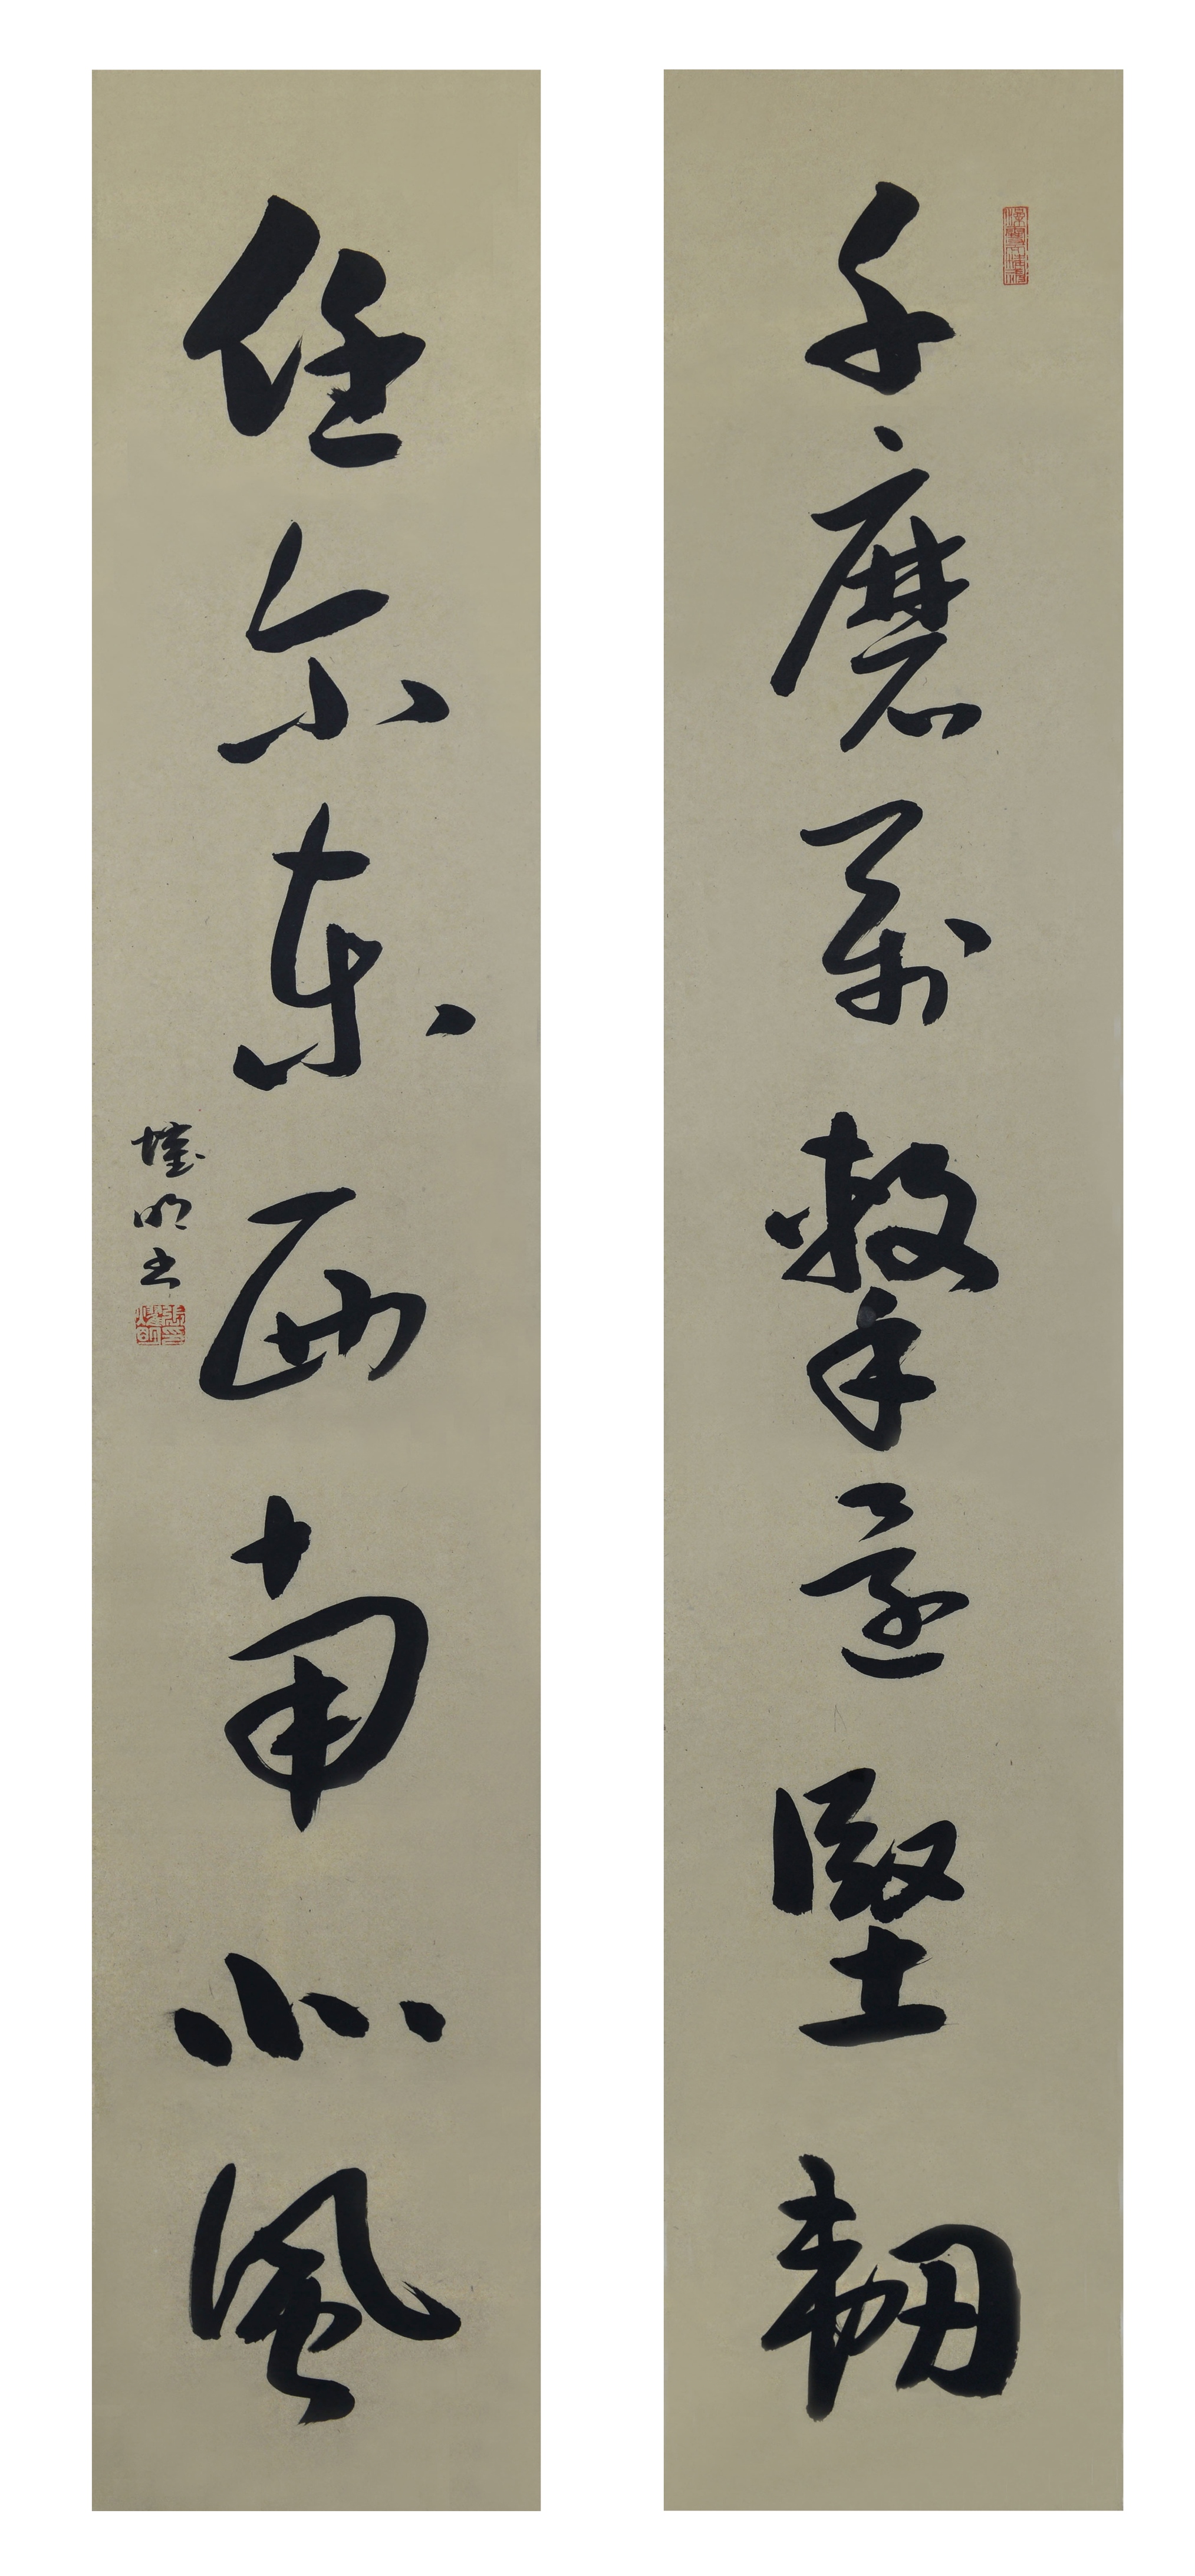 千磨萬擊還堅韌
任尔東西南北風
明书